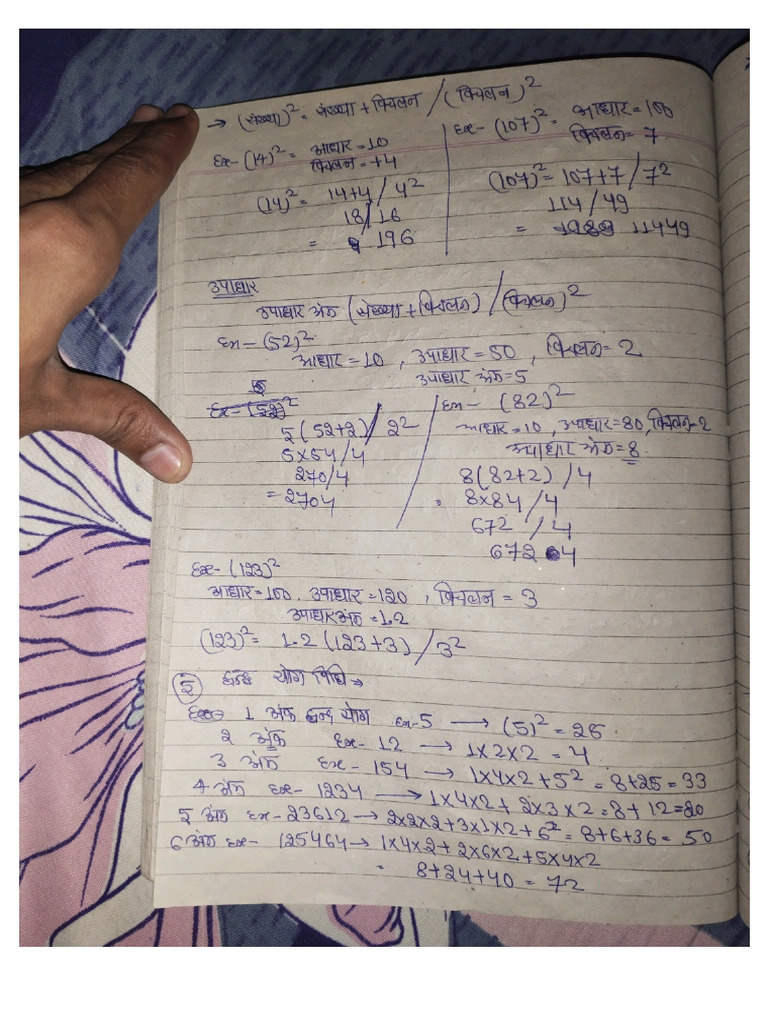 → (संख्या)² = संख्या + विचलन / (विचलन)²
Ex- (14)² = आधार = 10
विचलन = +4
(14)² = 14+4 / 4²
18 / 16
= 196
Ex- (107)² = आधार = 100
विचलन = 7
(107)² = 107+7 / 7²
114 / 49
= 11449
उपाधार
उपाधार अंक (संख्या + विचलन) / (विचलन)²
Ex - (52)²
आधार = 10 , उपाधार = 50 , विचलन = 2
उपाधार अंक = 5
Ex - (52)²
5 (52+2) / 2²
5×54 / 4
270 / 4
= 2704
Ex - (82)²
आधार = 10 , उपाधार = 80, विचलन = 2
उपाधार अंक = 8
8(82+2) / 4
= 8×84 / 4
672 / 4
67204
Ex- (123)²
आधार = 100 . उपाधार = 120 , विचलन = 3
उपाधार अंक = 1.2
(123)² = 1.2 (123+3) / 3²
5 द्वन्द योग विधि →
1 अंक द्वन्द योग Ex-5 → (5)² = 25
2 अंक Ex- 12 → 1×2×2 = 4
3 अंक Ex - 154 → 1×4×2 + 5² = 8+25 = 33
4 अंक Ex- 1234 → 1×4×2 + 2×3×2 = 8+12=20
5 अंक Ex- 23612 → 2×2×2 + 3×1×2 + 6² = 8+6+36 = 50
6 अंक Ex- 125464 → 1×4×2 + 2×6×2 + 5×4×2
= 8+24+40 = 72